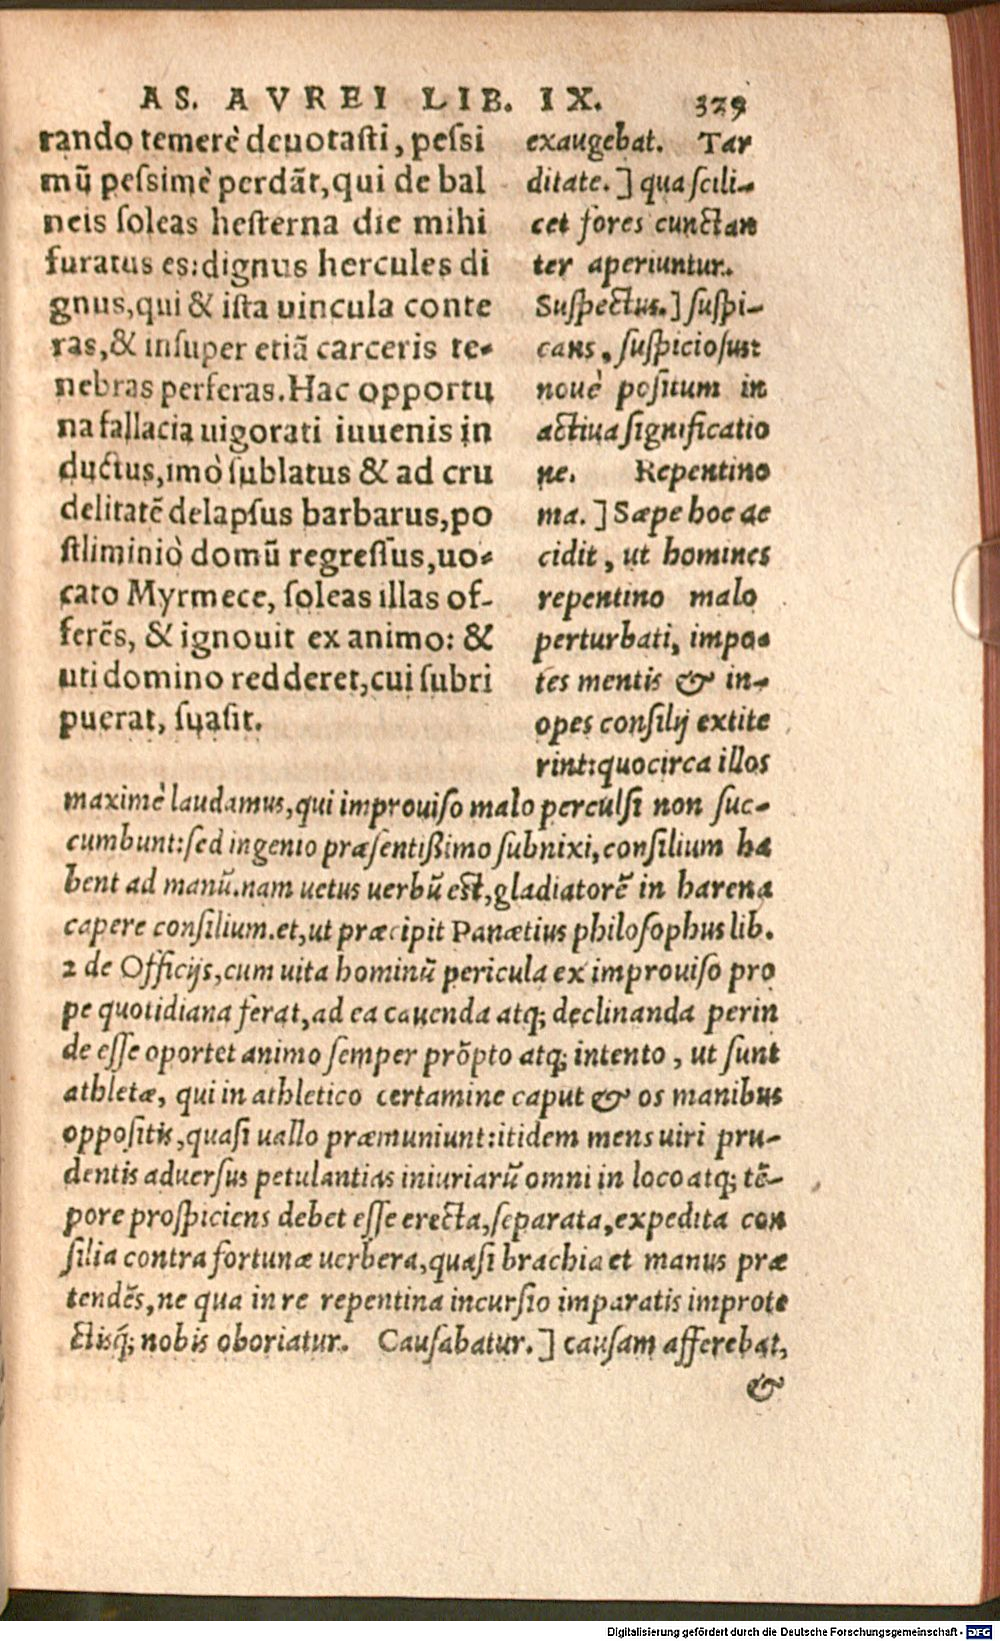 AS. AVREI LIB. IX. 329
rando temerè deuotasti, pessi
mũ pessimè perdāt, qui de bal
neis soleas hesterna die mihi
furatus es: dignus hercules di
gnus, qui & ista uincula conte
ras, & insuper etiā carceris te-
nebras perferas. Hac opportu
na fallacia uigorati iuuenis in
ductus, imò sublatus & ad cru
delitatē delapsus barbarus, po
stliminiò domũ regressus, uo-
cato Myrmece, soleas illas of-
ferēs, & ignouit ex animo: &
uti domino redderet, cui subri
puerat, suasit.
exaugebat. Tar
ditate.] qua scili-
cet fores cunctan
ter aperiuntur.
Suspectus.] suspi-
cans, suspiciosust
nouè positum in
actiua significatio
ne. Repentino
ma.] Sæpe hoc ac
cidit, ut homines
repentino malo
perturbati, impo-
tes mentis & in-
opes consilij extite
rint: quocirca illos
maximè laudamus, qui improuiso malo perculsi non suc-
cumbunt: sed ingenio præsentißimo subnixi, consilium ha
bent ad manũ. nam uetus uerbũ est, gladiatorē in harena
capere consilium. et, ut præcipit Panætius philosophus lib.
2 de Officijs, cum uita hominũ pericula ex improuiso pro
pe quotidiana ferat, ad ea cauenda atq; declinanda perin
de esse oportet animo semper prōpto atq; intento, ut sunt
athletæ, qui in athletico certamine caput & os manibus
oppositis, quasi uallo præmuniunt: itidem mens uiri pru-
dentis aduersus petulantias iniuriarũ omni in loco atq; tē-
pore prospiciens debet esse erecta, separata, expedita con
silia contra fortunæ uerbera, quasi brachia et manus præ
tendēs, ne qua in re repentina incursio imparatis improte
ctisq́; nobis oboriatur. Causabatur.] causam afferebat,
&
Digitalisierung gefördert durch die Deutsche Forschungsgemeinschaft - DFG